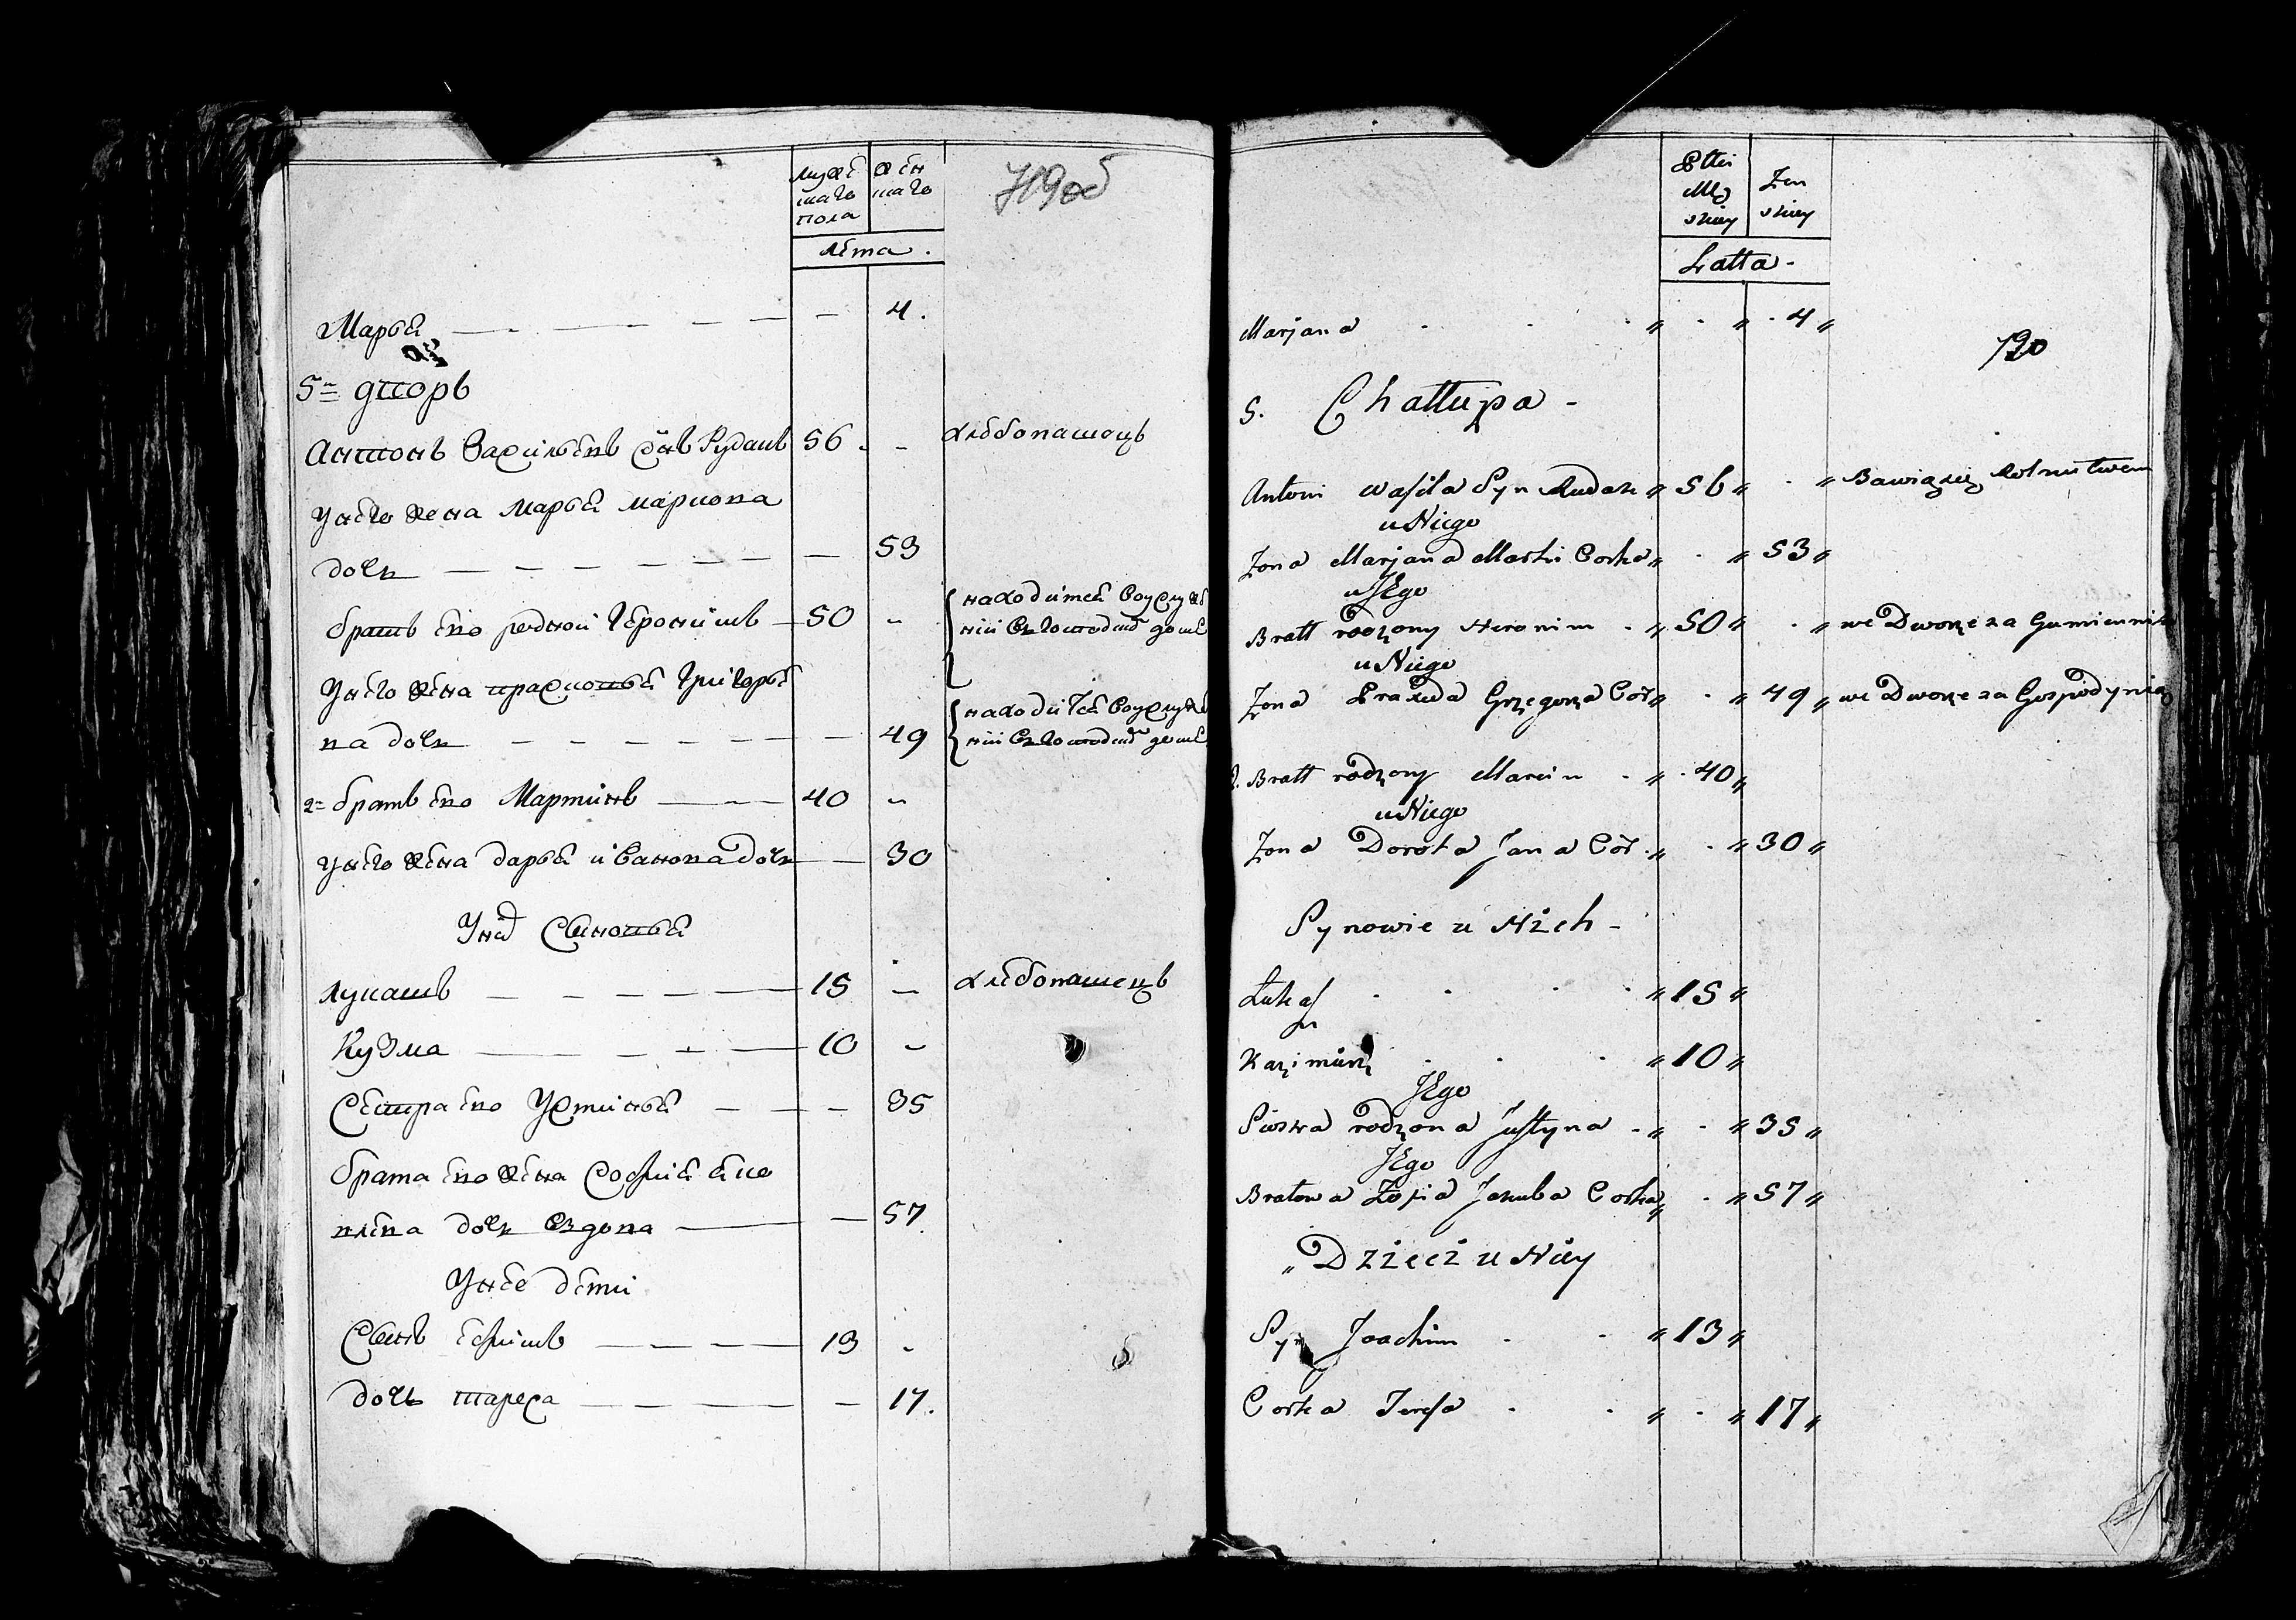 мужескаго пола
женскаго
719об
лета.
Марья — — 4.
5й дворъ
Антонъ Васильевъ сынъ Рудакъ 56 - - хлебопашецъ
У него жена Марья Маркова
дочь — — 53
братъ его родной Героним — 50 -
{ находитса воуслуже
нии въ господск доме
У него жена Праско Григорье
ва дочь — — 49
{ находитса воуслуже
нии въ господск доме
2й братъ его Мартинъ — 40 -
У него жена дарья иванова дочь — 30
У них сыновья
лукашъ — 15 - хлебопашецъ
Кузма — 10 -
Сестра его Устинья — — 35
брата его жена София яко
влева дочь вздова — — 57
У нее дети
Сынъ ефимъ — 13 -
дочь тареса — — 17.
Płci Męskiey
Żenskiey
Latta -
Marjana " . " . 4 "
720
5. Chattupa -
Antoni Wasila Syn Rudak " 56 " . " Bawiąsię Rolnictwem
u Niego
Żona Marjana Marki Corka " . " 53 "
u JEgo
Bratt rodzony Heronim . " 50 " . " we Dworze za Gumiennika
u Niego
Żona Praxeda Grzegorza Cór " . " 49 " we Dworze za Gospodynią
2. Bratt rodzony Marcin . " . 40 "
u Niego
Żona Dorota Jana Cór . " . " 30 "
Synowie u Nich -
Łukasz " 15 "
Kazimierz " 10 "
JEgo
Siostra rodzona Justyna . " . " 35 "
JEgo
Bratowa Zofia Jakuba Corka " . " 57 "
" Dzieci u Niey
Syn Joachim . . " 13 "
Corka Teresa . . " . " 17 "